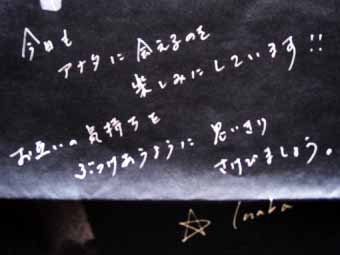 今日も
アナタに会えるのを
楽しみにしています!!
お互いの気持ちを
ぶつけあうように思いきり
さけびましょう。
☆ Inaba